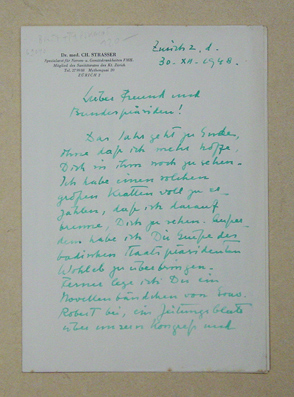 Dr. med. CH. STRASSER
Spezialarzt für Nerven- u. Gemütskrankheiten FMH
Mitglied des Sanitätsrates des Kt. Zürich
ZÜRICH 2
Zürich 2, 1.
30. XII. 1948.
Lieber Freund und
Bundespräsident!
Das Jahr geht zu Ende,
ohne daß ich mehr hoffe,
Dich in ihm noch zu sehen.
Ich habe einen solchen
großen Kratten voll zu er-
zählen, daß ich darauf
brenne, Dich zu sehen. Außer-
dem habe ich Dir Grüße des
badischen Staatspräsidenten
Wohleb zu überbringen.
Ferner lege ich Dir ein
Novellenbändchen von
Robert bei, ein Zeitungsblatt
über unseren Kongreß und